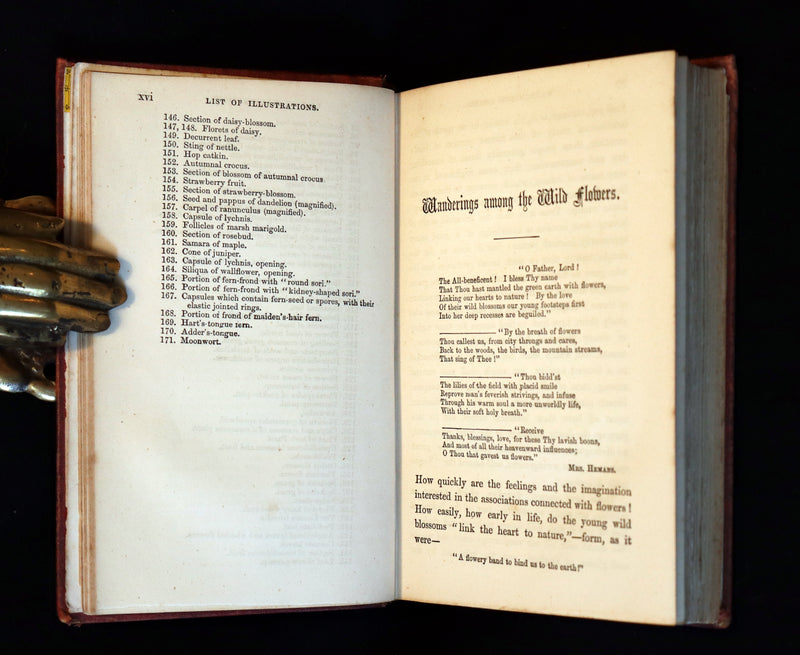 xvi
LIST OF ILLUSTRATIONS.
146. Section of daisy-blossom.
147, 148. Florets of daisy.
149. Decurrent leaf.
150. Sting of nettle.
151. Hop catkin.
152. Autumnal crocus.
153. Section of blossom of autumnal crocus
154. Strawberry fruit.
155. Section of strawberry-blossom.
156. Seed and pappus of dandelion (magnified).
157. Carpel of ranunculus (magnified).
158. Capsule of lychnis.
159. Follicles of marsh marigold.
160. Section of rosebud.
161. Samara of maple.
162. Cone of juniper.
163. Capsule of lychnis, opening.
164. Siliqua of wallflower, opening.
165. Portion of fern-frond with "round sori."
166. Portion of fern-frond with "kidney-shaped sori."
167. Capsules which contain fern-seed or spores, with their
elastic jointed rings.
168. Portion of frond of maiden's-hair fern.
169. Hart's-tongue fern.
170. Adder's-tongue.
171. Moonwort.
Wanderings among the Wild Flowers.
"O Father, Lord!
The All-beneficent! I bless Thy name
That Thou hast mantled the green earth with flowers,
Linking our hearts to nature! By the love
Of their wild blossoms our young footsteps first
Into her deep recesses are beguiled."
"By the breath of flowers
Thou callest us, from city throngs and cares,
Back to the woods, the birds, the mountain streams,
That sing of Thee!"
"Thou bidd'st
The lilies of the field with placid smile
Reprove man's feverish strivings, and infuse
Through his warm soul a more unworldly life,
With their soft holy breath."
"Receive
Thanks, blessings, love, for these Thy lavish boons,
And most of all their heavenward influences;
O Thou that gavest us flowers."
MRS. HEMANS.
How quickly are the feelings and the imagination
interested in the associations connected with flowers!
How easily, how early in life, do the young wild
blossoms "link the heart to nature,"—form, as it
were—
"A flowery band to bind us to the earth!"